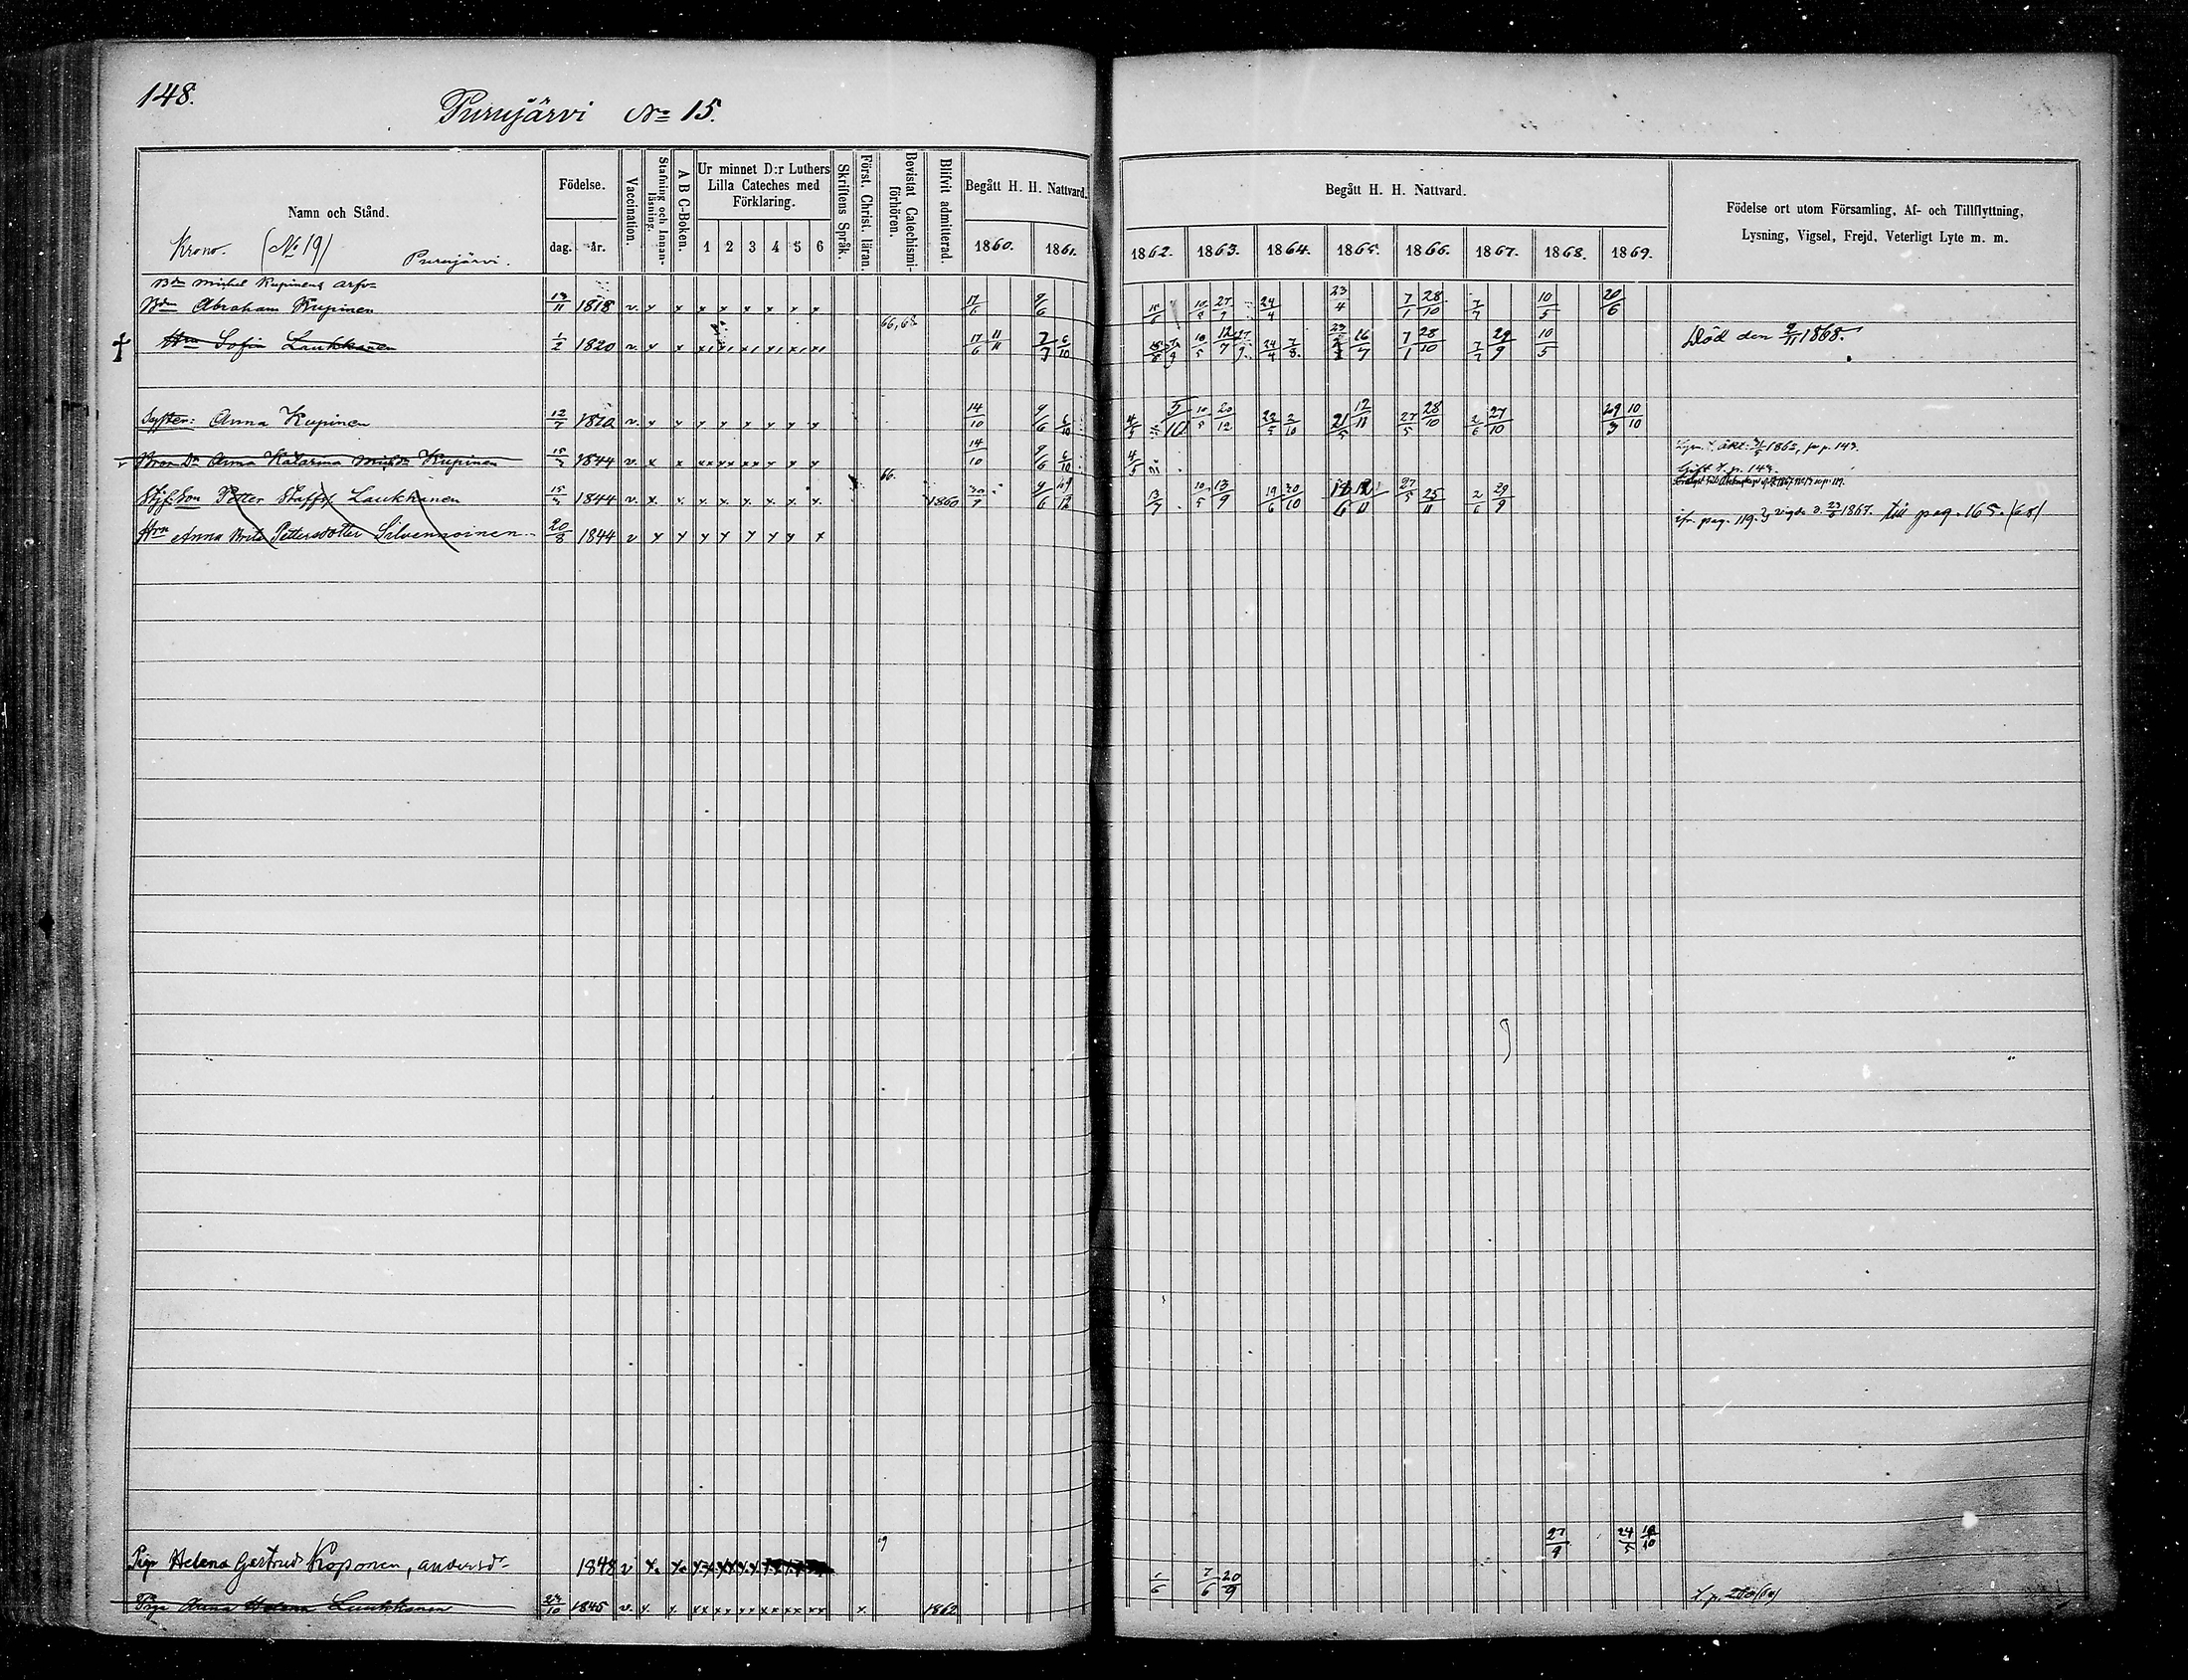 148.
Purujärvi No 15.
Namn och Stånd.
Krono. (No 19) Purujärvi.
Födelse.
dag. år.
Vaccination.
Stafning och Innanläsning.
A B C-Boken.
Ur minnet D:r Luthers Lilla Cateches med Förklaring.
1 2 3 4 5 6
Skriftens Språk.
Först. Christ. läran.
Bevistat Catechismi-förhören.
Blifvit admitterad.
Begått H. H. Nattvard.
1860. 1861.
Begått H. H. Nattvard.
1862. 1863. 1864. 1865. 1866. 1867. 1868. 1869.
Födelse ort utom Församling, Af- och Tillflyttning,
Lysning, Vigsel, Frejd, Veterligt Lyte m. m.
Bdn Michel Kupinens arfv
Bdn Abraham Kupinen 13/11 1818 v. x x x x x x x x 17/6 9/6 24/4 23/4 7/1 28/10 7/7 10/5 20/6
66, 68.
Hru Sofia Laukkanen 1/2 1820 v. x x 17/6 11/11 24/4 7/1 28/10 7/7 29/9 10/5 Död den 9/11 1868.
Syster: Anna Kupinen 12/7 1820 v. x x x x x x x x 14/10 9/6 6/10 4/5 5/10 10/5 20/12 22/5 2/10 21/5 12/11 27/5 28/10 2/6 27/10 29/3 10/10
Bror Dr Anna Katarina Michdr Kupinen 15/3 1844 v. x x 14/10 9/6 6/10 4/5
Gift s. p. 143.
66.
Styfson Petter Staffs Laukkanen 15/3 1844 v. x. x. x. x. x. x. x. x. 1860 30/9 13/7 10/5 13/9 19/6 30/10 27/5 25/11 2/6 29/9
jfr. pag. 119. vigde d. 23/6 1867. till pag. 165. (68)
Hru Anna Brita Pettersdotter Silvennoinen 20/8 1844 v x x x x x x x x
9
27/9 24/5
Pig. Helena Gertrud Koponen, andersdr 1848 v x. x.
1/6 7/6 20/9
Piga Anna Helena Laukkanen 24/10 1845 v. x. x. xx xx xx xx xx xx x. 1862